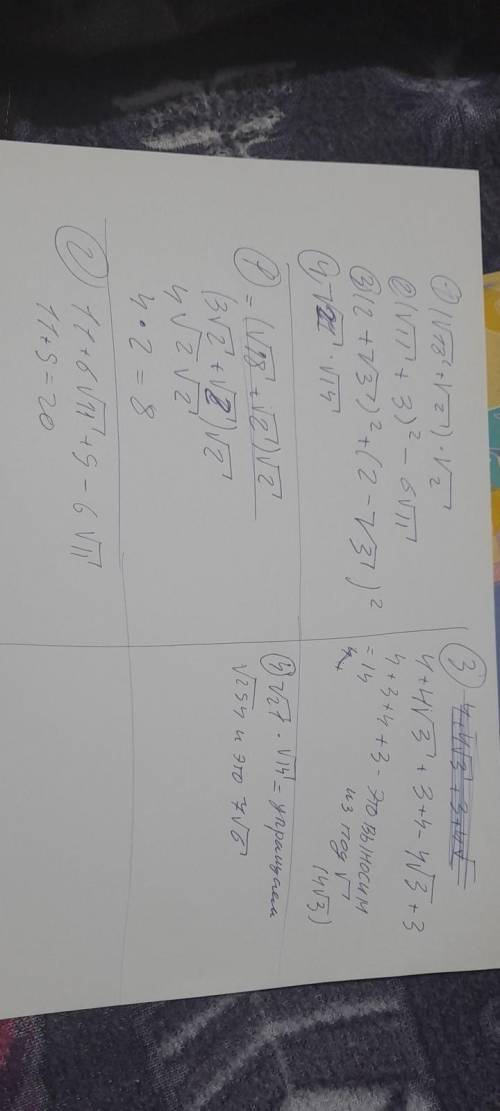 ① (√18 + √2) · √2
② (√11 + 3)² − 6√11
③ (2 + √3)² + (2 − √3)²
④ √21 · √14
① = (√18 + √2)√2
(3√2 + √2)√2
4√2√2
4 · 2 = 8
② 11 + 6√11 + 9 − 6√11
11 + 9 = 20
③ 4+4√3+3+4√
4 + 4√3 + 3 + 4 − 4√3 + 3
4 + 3 + 4 + 3 - это выносим
= 14 из под √ (4√3)
④ √27 · √14 = упращаем
√254 и это 7√6